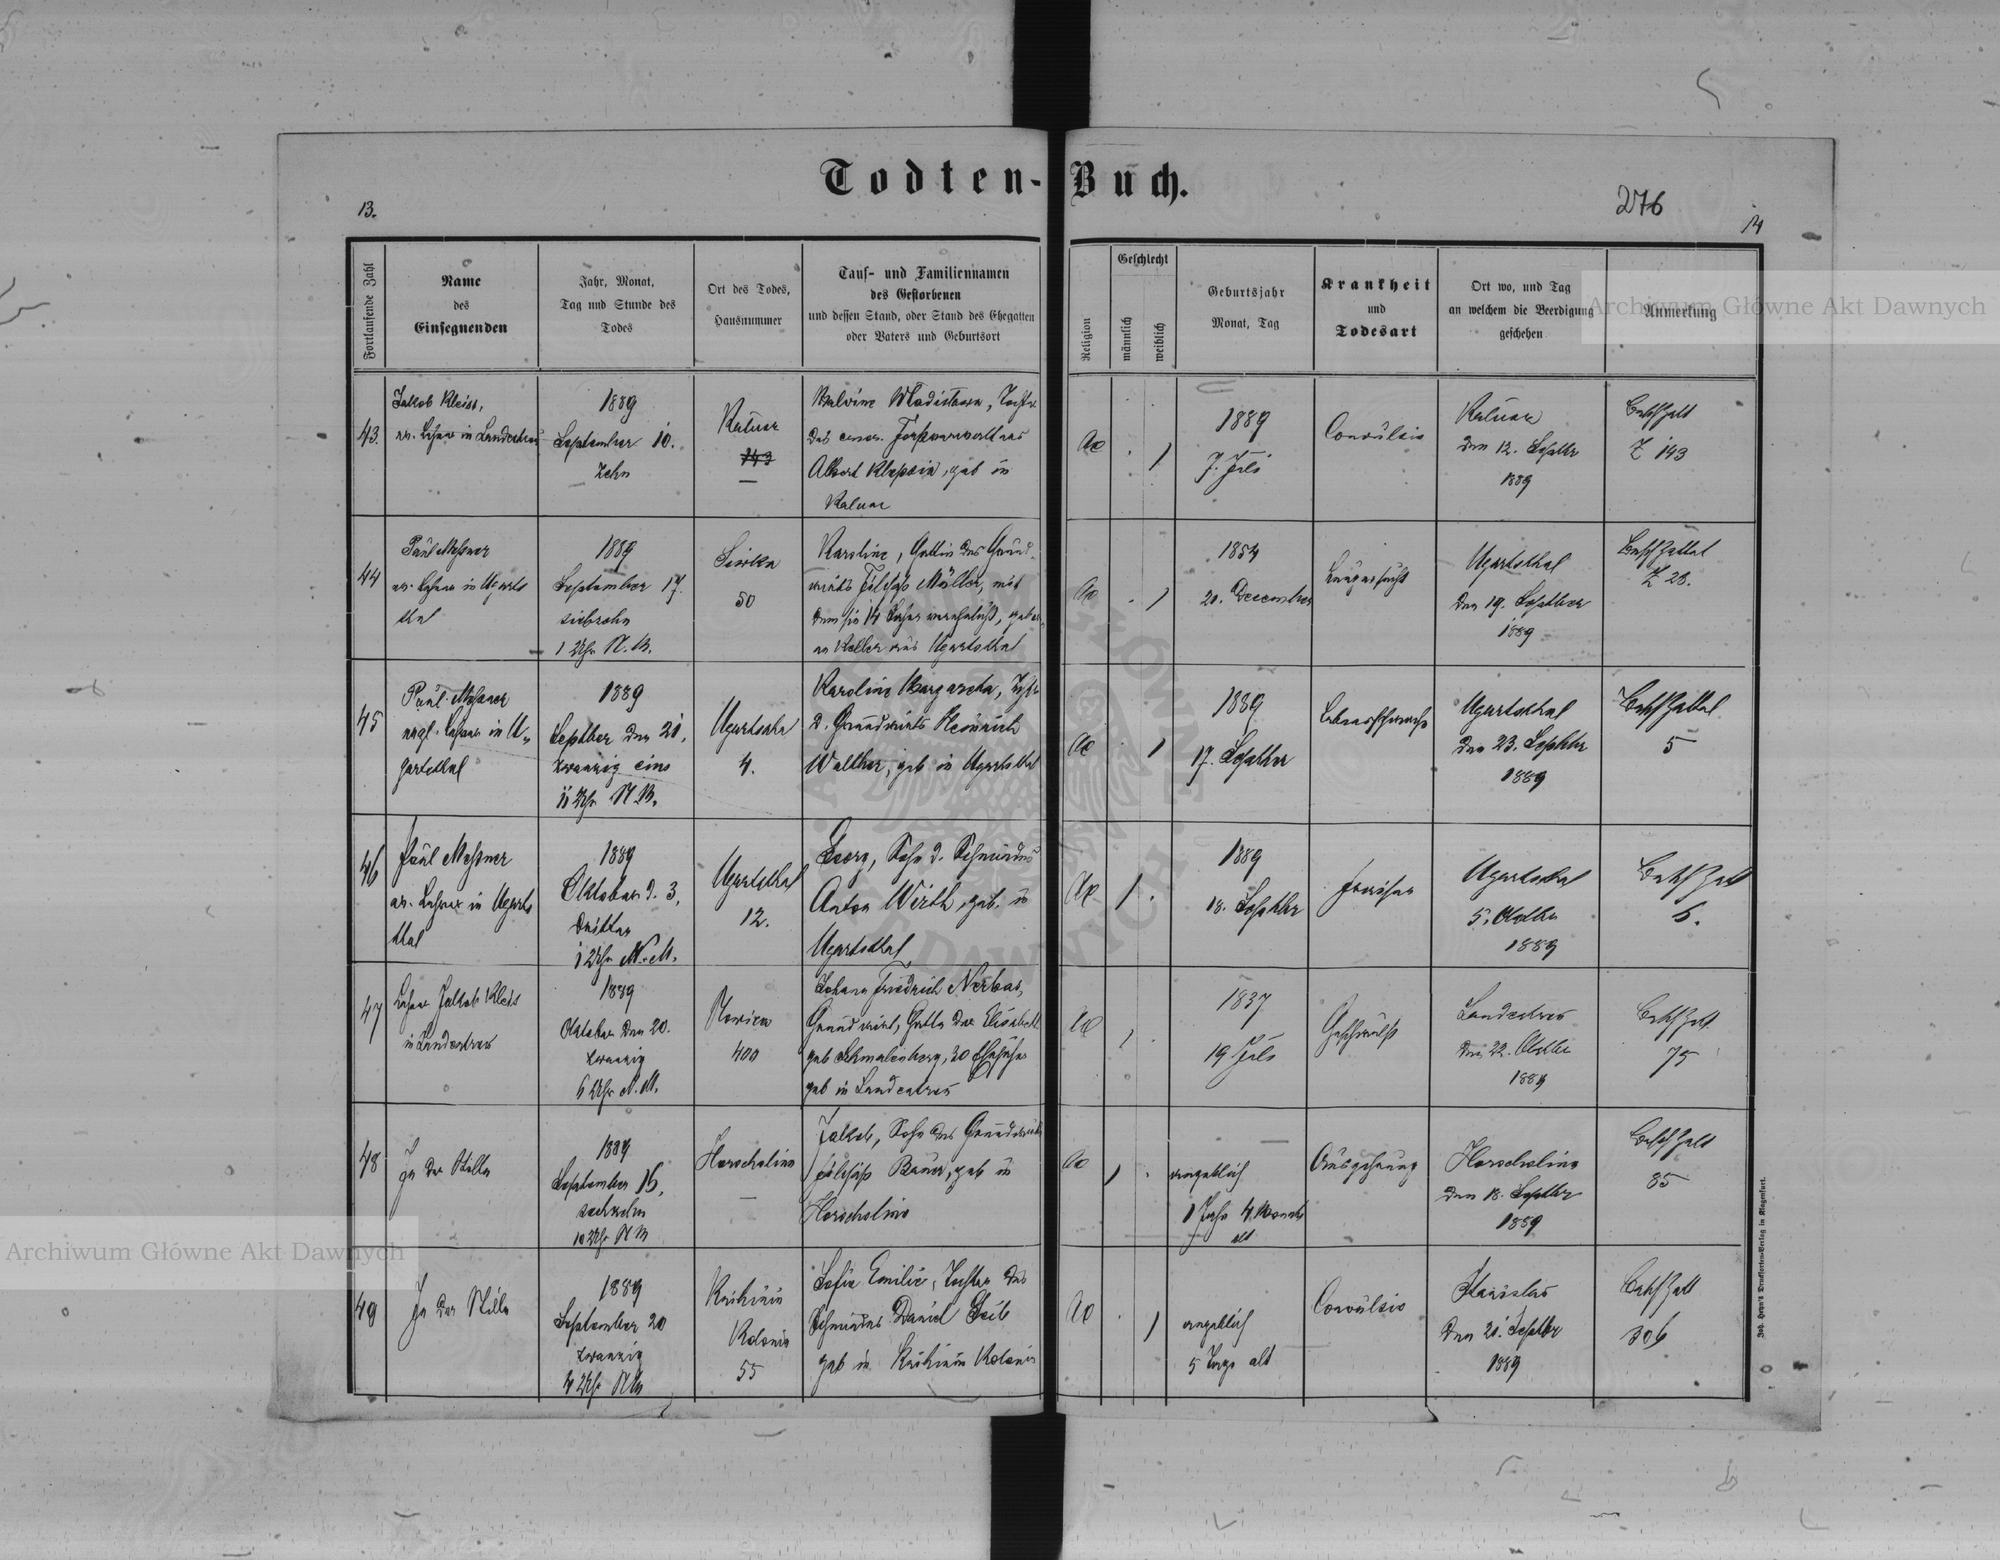 Todten-Buch.
13.
276
14
Fortlaufende Zahl
Name
des
Einsegnenden
Jahr, Monat,
Tag und Stunde des
Todes
Ort des Todes,
Hausnummer
Tauf- und Familiennamen
des Gestorbenen
und dessen Stand, oder Stand des Ehegatten
oder Vaters und Geburtsort
Religion
Geschlecht
männlich
weiblich
Geburtsjahr
Monat, Tag
Krankheit
und
Todesart
Ort wo, und Tag
an welchem die Beerdigung
geschehen
Anmerkung
43.
Jakob Kleiss,
ev. Lehrer in Landestreu
1889
September 10.
Zehn
Kalusz
143
Malvine Wladislawa, Tochter
des
Albert, geb in
Kalusz
1889
7. Juli
Convulsio
Kalusz
den 12. Septbr
1889
Besch Zett
Z 143
44
Paul Messner
ev. Lehrer in Ugarts
thal
1889
September 17.
siebzehn
1 Uhr N. M.
Siwka
50
Karoline, Gattin des Grund-
wirts Philipp Müller, mit
dem sie 14 Jahre verehelicht, gebor.
Keller aus Ugartsthal
1854
20. December
Lungensucht
Ugartsthal
den 19. Septber
1889
Besch Zettel
Z 28.
45
Paul Messner
evgl. Lehrer in U-
gartsthal
1889
Septber den 21.
zwanzig eins
11 Uhr N. M.
Ugartsthal
4.
Karoline Margaretha, Tocht.
d. Grundwirts Heinrich
Walther, geb in Ugartsthal
1889
17. Septber
Lebensschwäche
Ugartsthal
den 23. Septbr
1889
Besch Zettel
5
46
Paul Messner
ev. Lehrer in Ugarts
thal
1889
Oktober d. 3.
dritter
1 Uhr N. M.
Ugartsthal
12.
Georg, Sohn d. Schmiedes
Anton Wirth, geb. in
Ugartsthal
1889
18. Septbr
Fraisen
Ugartsthal
5. Oktbr
1889
Besch Zett
6.
47
Lehrer Jakob Kleis
in Landestreu
1889
Oktober den 20.
zwanzig
6 Uhr N. M.
Nowica
400
Johann Friedrich Nerbas,
Grundwirt, Gatte der Elisabeth
geb Schmalenberg, 30 Ehejahre
geb in Landestreu
1837
19 Juli
Geschwulst
Landestreu
den 22. Oktbr
1889
Besch Zett
75
48
In der Stille
1889
September 16.
sechzehn
10 Uhr N M
Horocholina
Jakob, Sohn des Grundwirts
Philipp Bauer, geb in
Horocholina
angeblich
1 Jahr 4 Monate
alt
Auszehrung
Horocholina
den 18. Septbr
1889
Besch Zett
85
49
In der Stille
1889
September 20
zwanzig
4 Uhr N M
Kolonie
55
Sofie Emilie, Tochter des
Schmiedes Daniel
geb in Kolonie
angeblich
5 Tage alt
Convulsio
Stanislau
den 21. Septbr
1889
Besch Zett
306
Joh. Heyn's Drucksorten-Verlag in Klagenfurt.
Archiwum Główne Akt Dawnych
Archiwum Główne Akt Dawnych